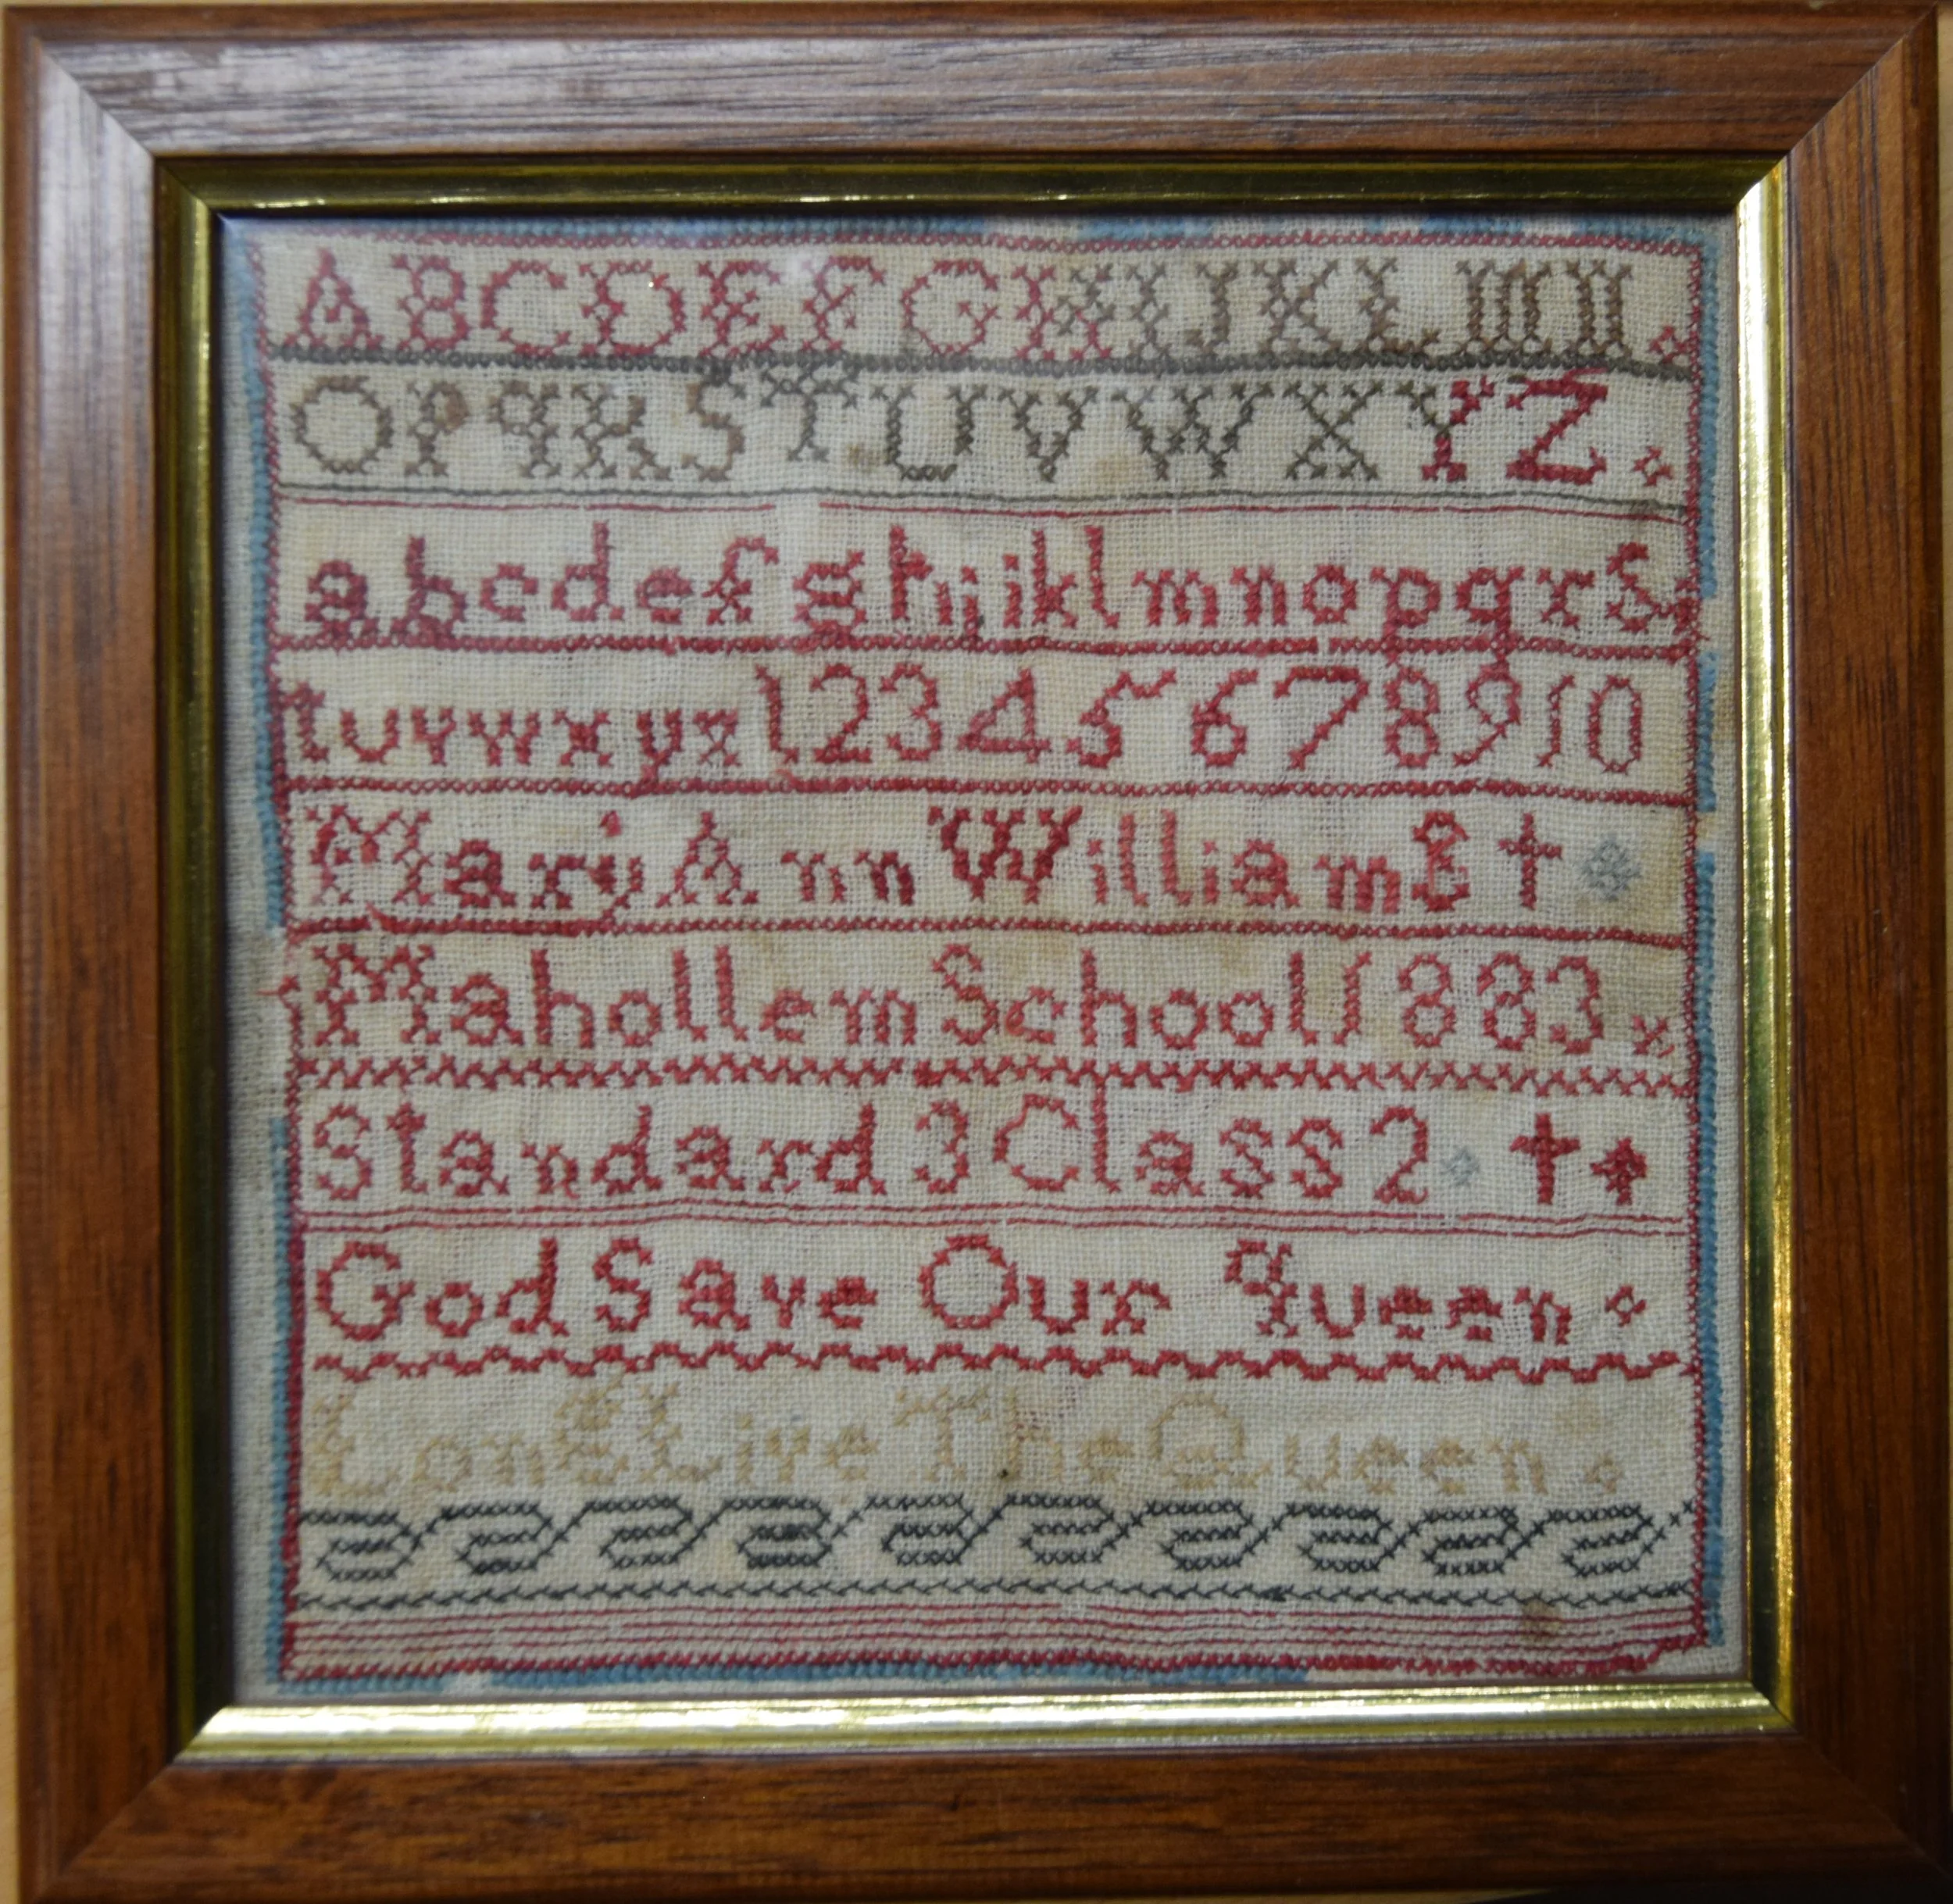 ABCDEFGHIJKLMN
OPqRSTUVWXYZ
abcdefghijklmnopqrs
tuvwxyz12345678910
Mary Ann Williams
Mahollem School 1883
Standard 3 Class 2
God Save Our queen
Long Live The Queen